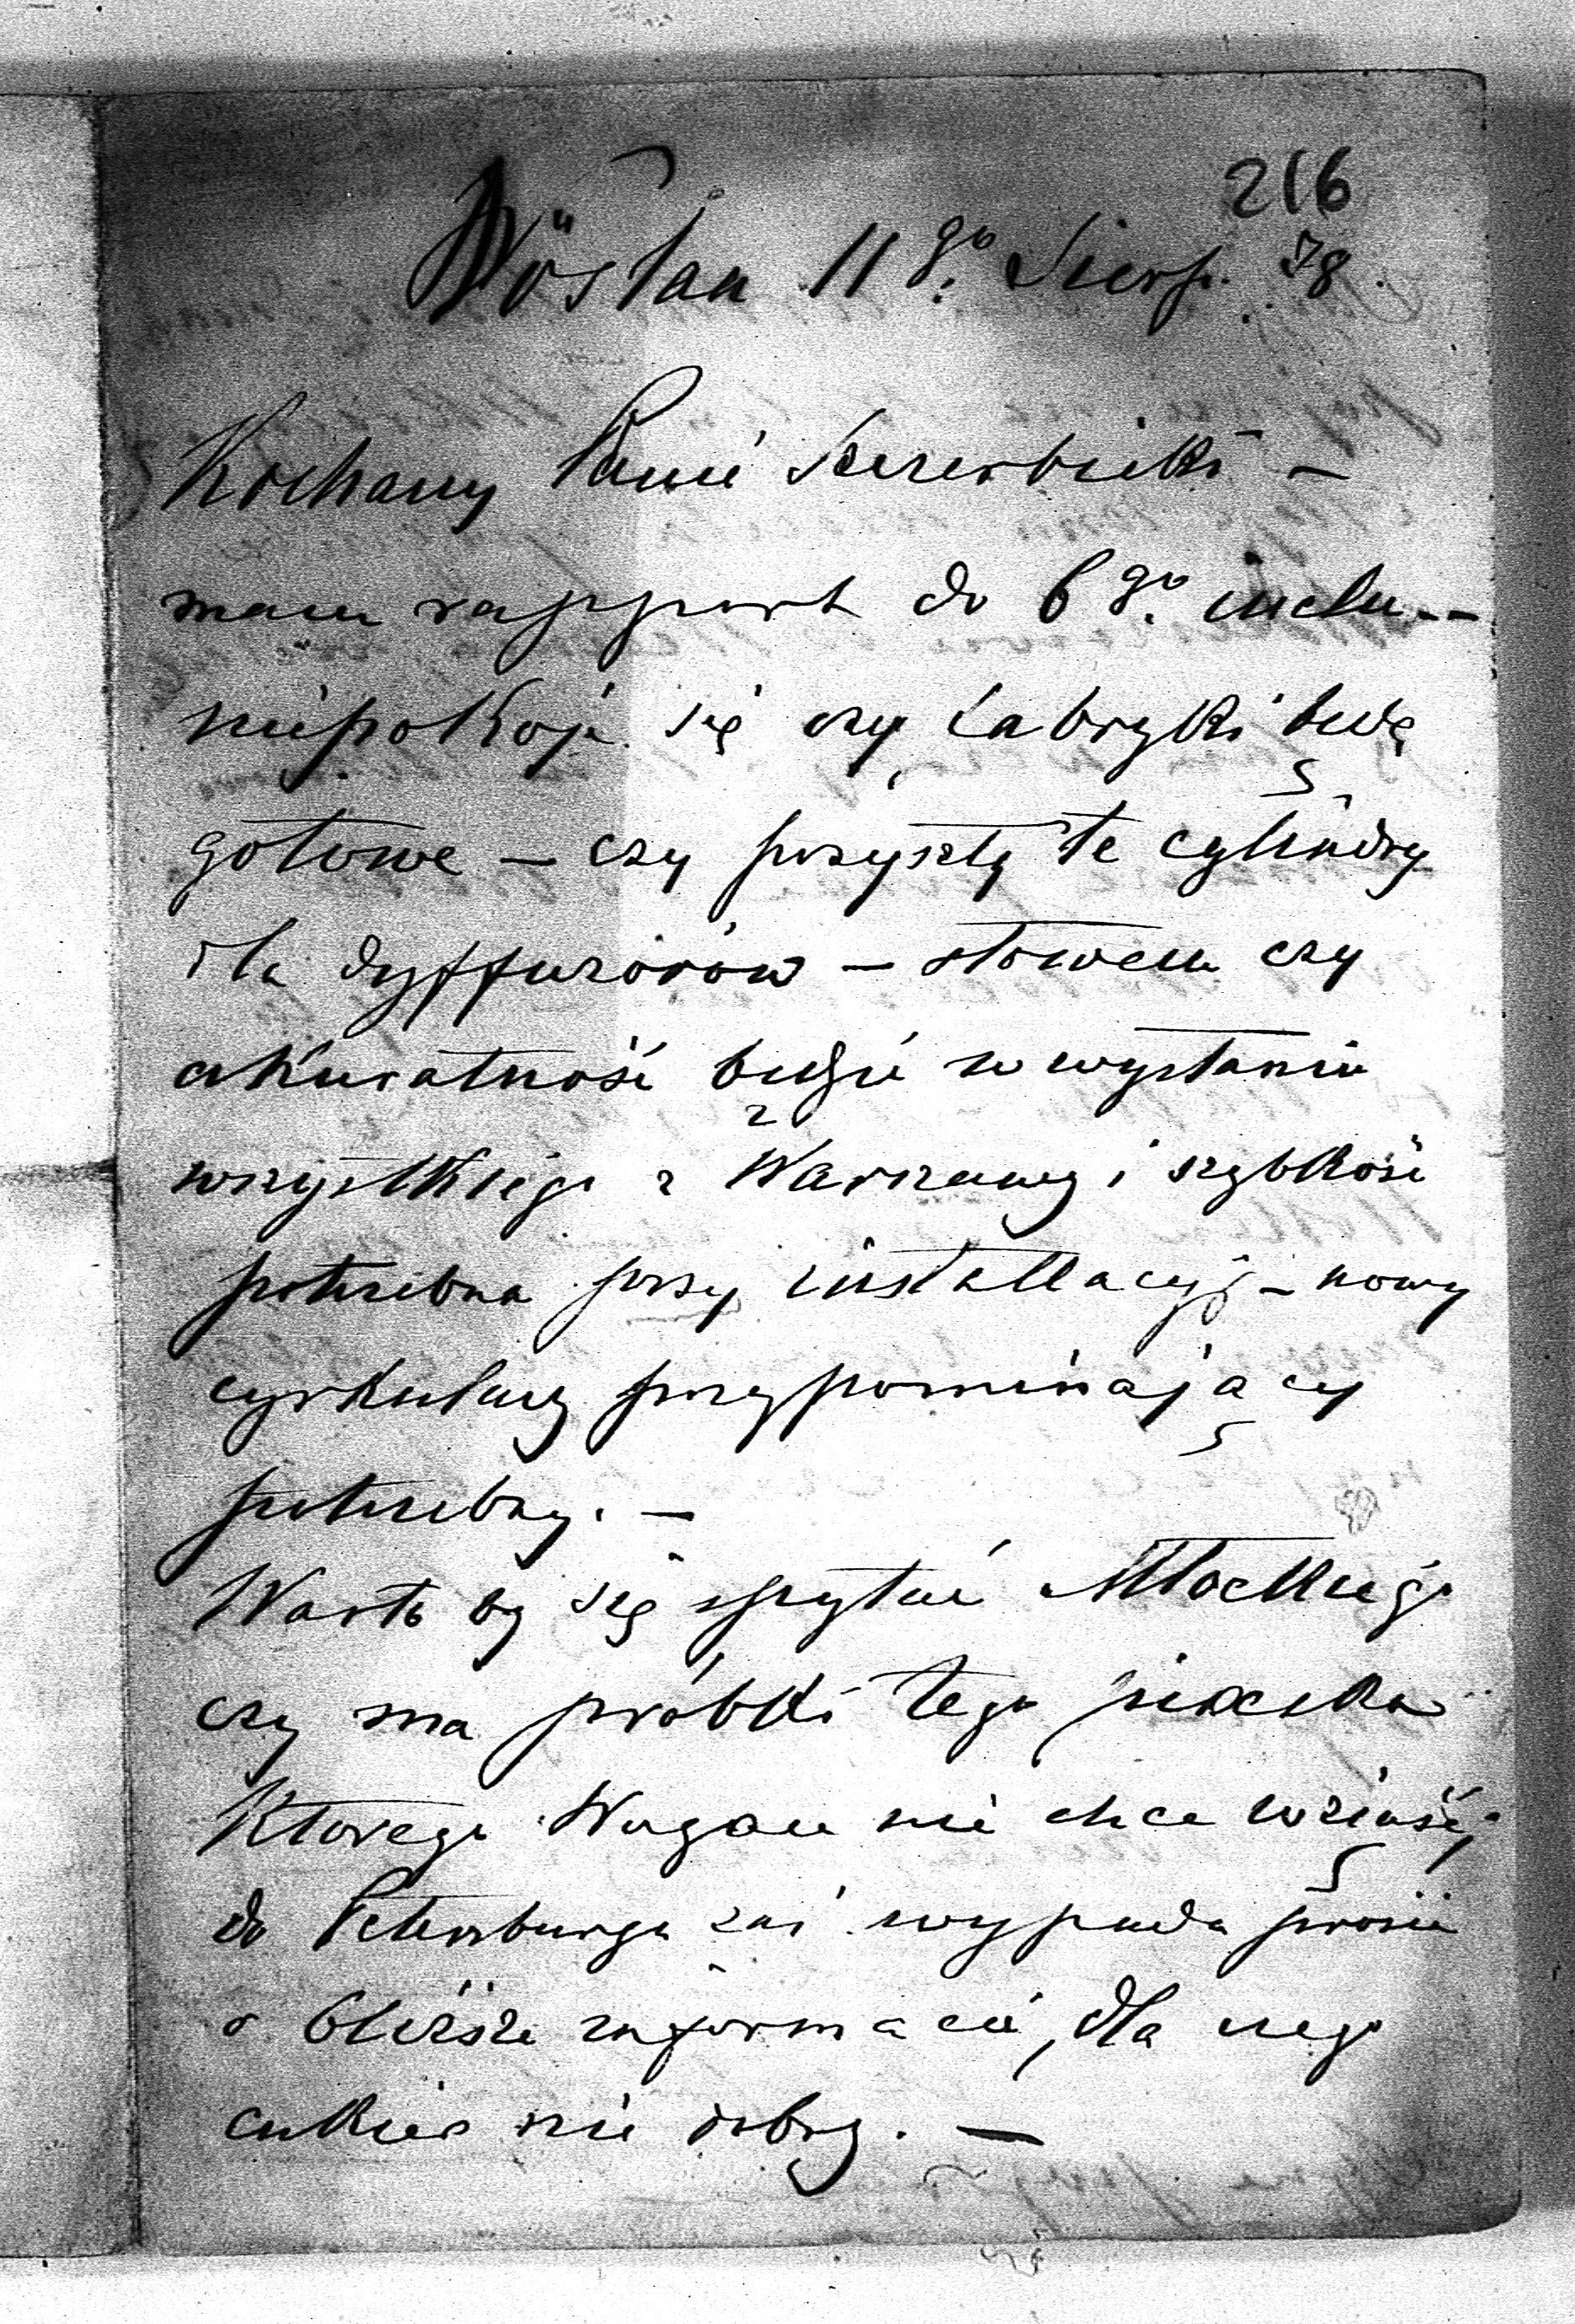 216
Vöslau 11go Sierp. 78.
Kochany Panie Szczerbicki –
mam rapport do 6go inclu. –
niepokoję się czy fabryki będą
gotowe – czy przyszły te cylindry
dla dyffuzorów – słowem czy
akuratność będzie w wysłaniu
wszystkiego z Warszawy i szybkość
potrzebna przy installacyj – nowy
cyrkularz przypominający
potrzebny. –
Warto by się spytać Młockiego
czy ma próbki tego piasku
którego Wogau nie chce wziąść,
do Petersburga zaś wypada prosić
o bliższe informacie, dla czego
cukier nie dobry. –